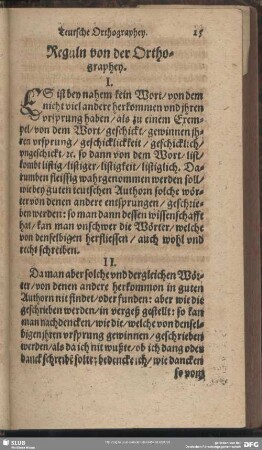 Teutsche Orthographey. 15
Reguln von der Ortho-
graphey.
I.
ES ist bey nahem kein Wort/ von dem
nicht viel andere herkommen vnd jhren
vrsprung haben/ als zu einem Exem-
pel/ von dem Wort/ geschickt/ gewinnen jh-
ren vrsprung/ geschicklickeit/ geschicklich/
vngeschickt/ ꝛc. so dann von dem Wort/ list/
kumbt listig/ listiger/ listigkeit/ listiglich. Da-
rumben fleissig wahrgenommen werden soll/
wie bey guten teutschen Authorn solche wör-
ter von denen andere entsprungen/ geschrie-
ben werden: so man dann dessen wissenschafft
hat/ kan man vnschwer die Wörter/ welche
von denselbigen herfliessen/ auch wohl vnd
recht schreiben.
II.
Da man aber solche vnd dergleichen Wör-
ter/ von denen andere herkommen in guten
Authorn nit findet/ oder funden: aber wie die
geschrieben werden/ in vergeß gestellt: so kan
man nachdencken/ wie die/ welche von densel-
bigen jhren vrsprung gewinnen/ geschrieben
werden/ als da ich nit wußte/ ob ich dang oder
danck schreibē solte; bedencke ich/ wie dancken
so von
SLUB